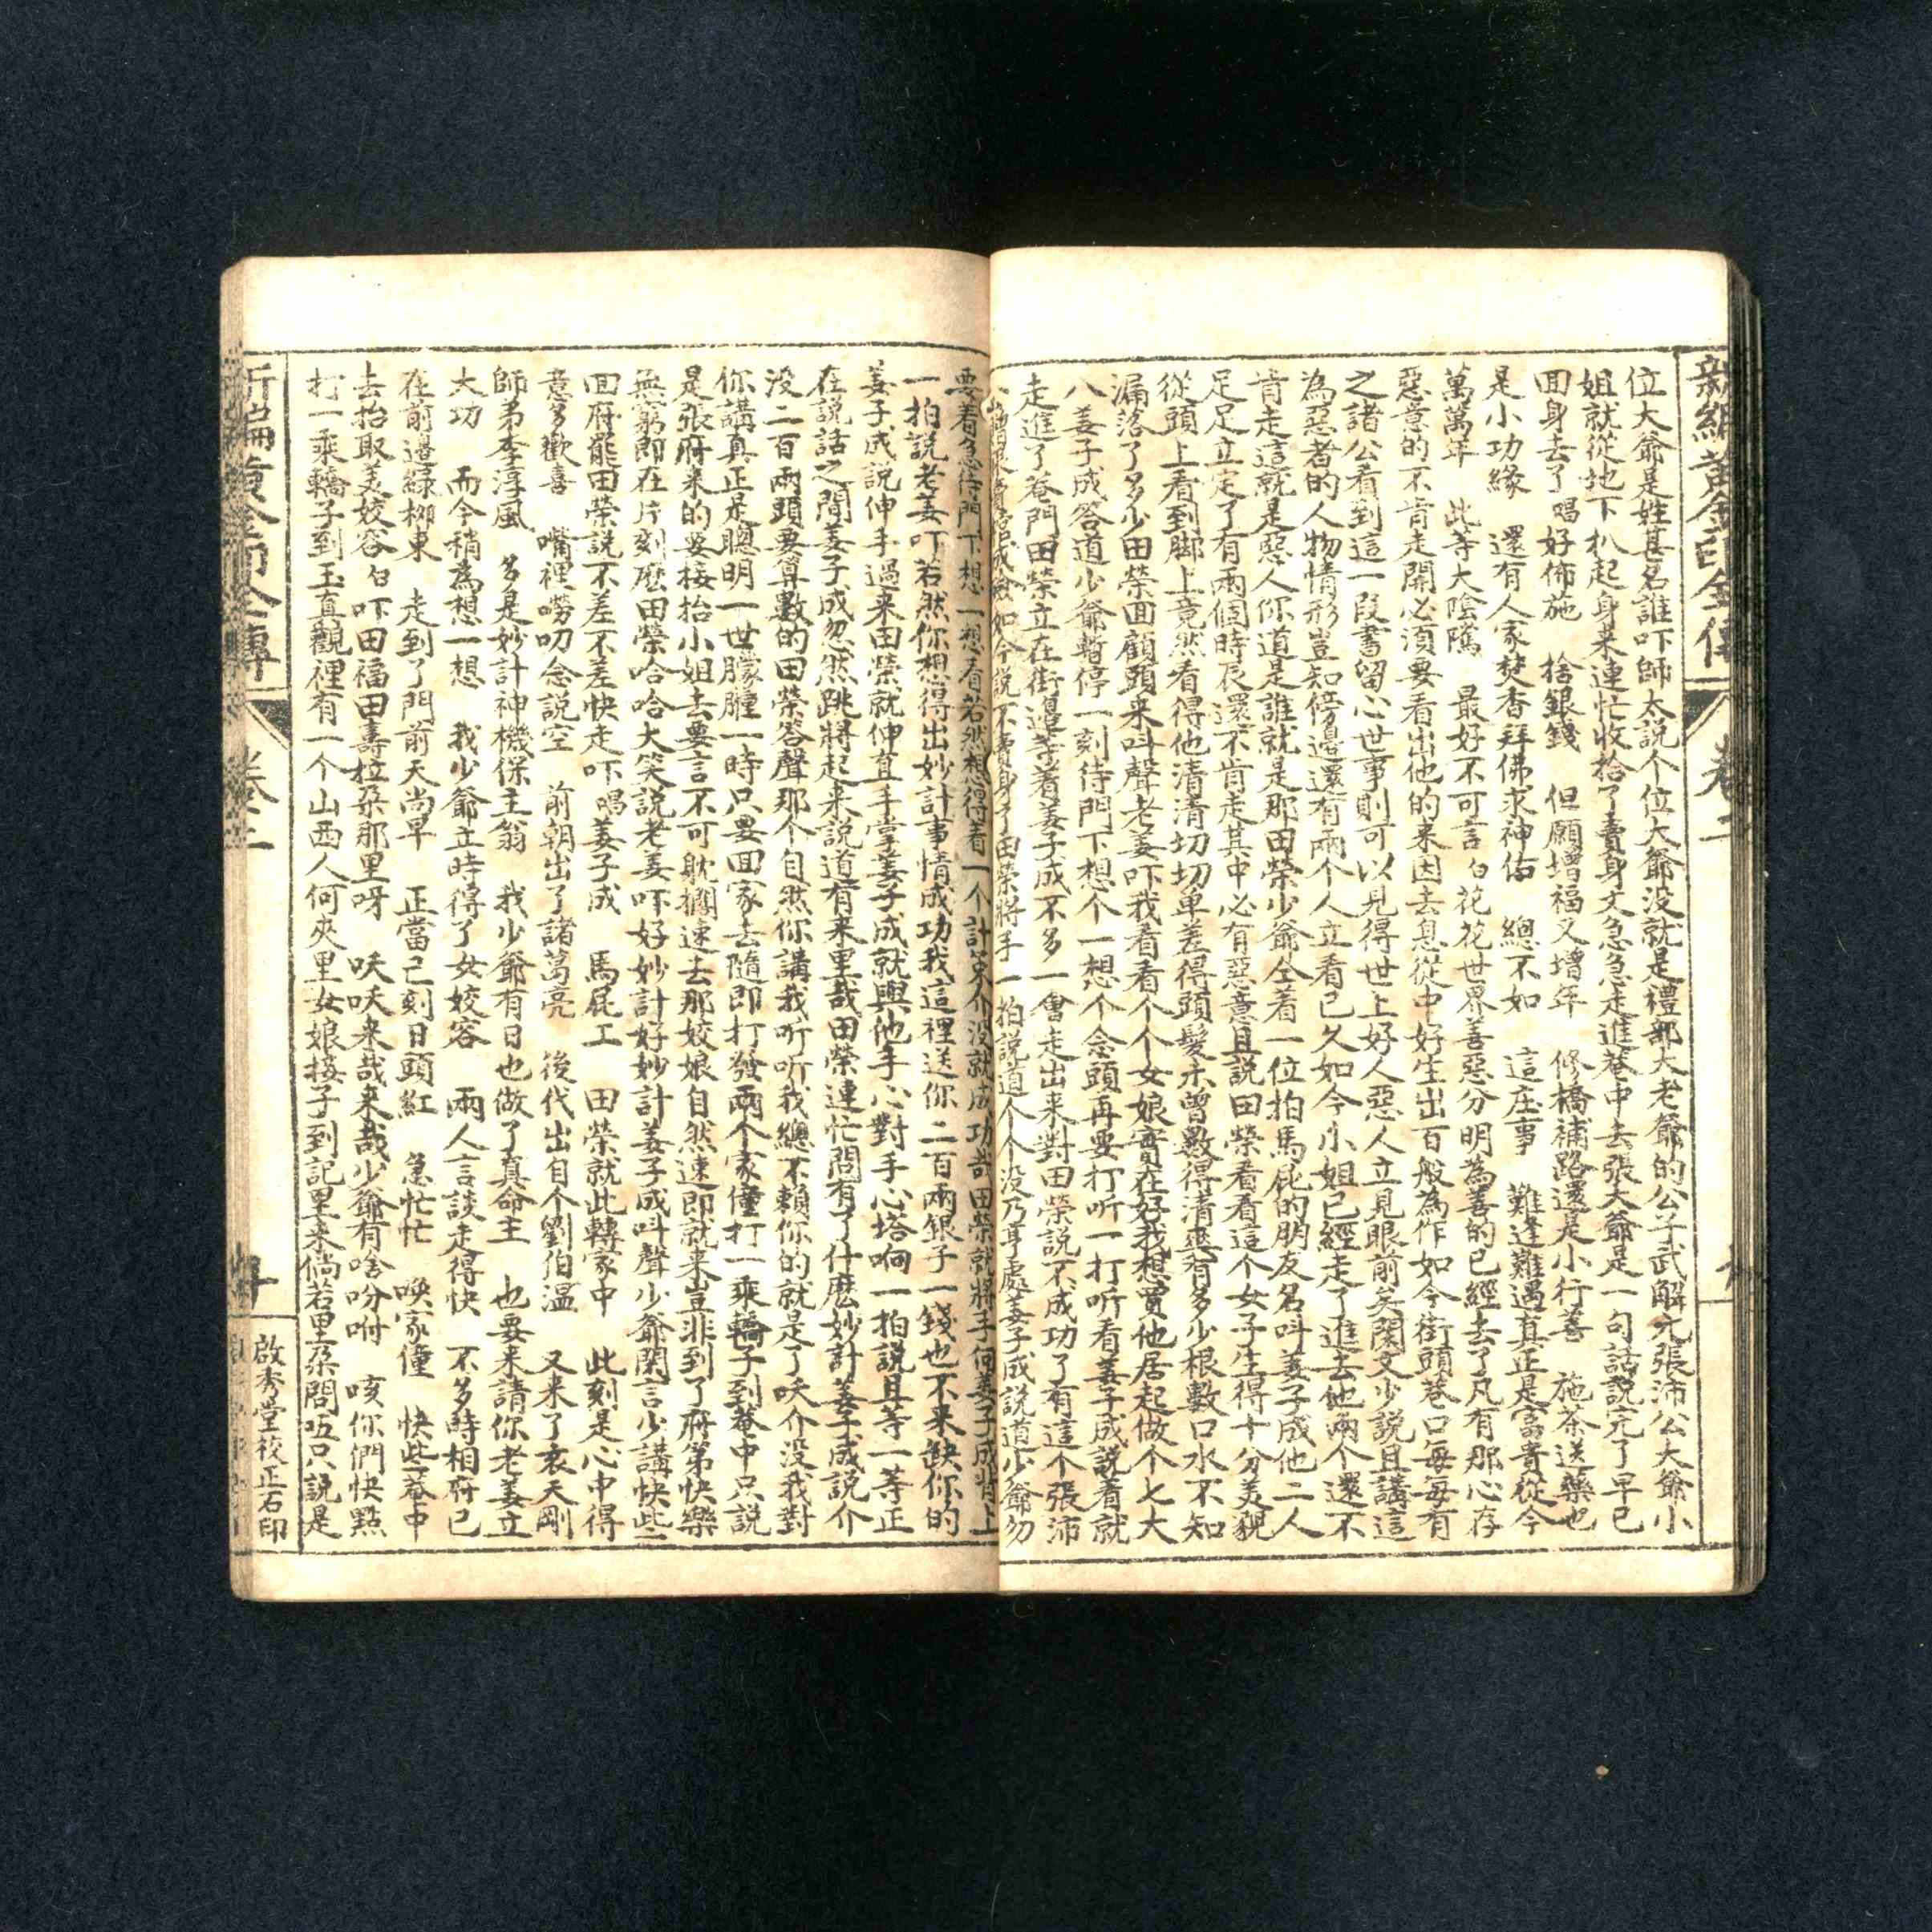 新編黃金印全傳
卷二
位大爺是姓甚名誰吓師太説个位大爺没就是禮部大老爺的公子武解元張沛公大爺小
姐就從地下扒起身来連忙收拾了賣身文急急走進菴中去張大爺是一句話説完了早已
回身去了唱好佈施 捨銀錢 但願增福又增年 修橋補路還是小行善 施茶送藥也
是小功緣 還有人家焚香拜佛求神佑 總不如 這庄事 難逢難遇真正是富貴從今
萬萬年 此等大陰隲 最好不可言白花花世界善惡分明為善的已經去了凡有那心存
惡意的不肯走開必須要看出他的来因去息從中好生出百般為作如今街頭巷口每每有
之諸公看到這一段書留心世事則可以見得世上好人惡人立見眼前矣閑文少説且講這
為惡者的人物情形豈知傍邊還有兩个人立看已久如今小姐已經走了進去他兩个還不
肯走這就是惡人你道是誰就是那田榮少爺仝着一位拍馬屁的朋友名叫姜子成他二人
足足立定了有兩個時辰還不肯走其中必有惡意且説田榮看看這个女子生得十分美貌
從頭上看到脚上竟然看得他清清切切单差得頭髮未曾數得清爽有多少根數口水不知
漏落了多少田榮回顧頭来叫聲老姜吓我看看个个女娘實在好我想買他居起做个七大
八姜子成答道少爺暫停一刻待門下想个一想个念頭再要打听一打听看姜子成説看就
走進了菴門田榮立在街邊等着姜子成不多一會走出来對田榮説不成功了有這个張沛
如今説不賣身了田榮將手一拍説道个个没乃辱處姜子成説道少爺勿
要着急待門下想一想看若然想得着一个計策介没就成功哉田榮就將手向姜子成背上
一拍説老姜吓若然你想得出妙計事情成功我這裡送你二百兩銀子一錢也不来缺你的
姜子成説伸手過来田榮就伸直手掌姜子成就與他手心對手心塔响一拍説且等一等正
在説話之間姜子成忽然跳將起来説道有来里哉田榮連忙問有了什麽妙計姜子成説介
没二百兩頭要算數的田榮答聲那个自然你講我听听我總不賴你的就是了呋介没我對
你講真正是聰明一世朦朧一時只要回家去隨即打發兩个家僮打一乘轎子到菴中只説
是張府来的要接抬小姐去要言不可躭擱速去那姣娘自然速即就来豈非到了府第快樂
無窮即在片刻麽田榮哈哈大笑説老姜吓好妙計好妙計姜子成叫聲少爺閑言少講快些
回府罷田榮説不差不差快走吓唱姜子成 馬屁工 田榮就此轉家中 此刻是心中得
意多歡喜 嘴裡嘮叨念説空 前朝出了諸葛亮 後代出自个劉伯温 又来了袁天剛
師弟李淳風 多是妙計神機保主翁 我少爺有日也做了真命主 也要来請你老姜立
大功 而今稍為想一想 我少爺立時得了女姣容 兩人言談走得快 不多時相府已
在前邊緑柳東 走到了門前天尚早 正當己刻日頭紅 急忙忙 喚家僮 快些菴中
去抬取美姣容白吓田福田壽拉朶那里呀 呋呋来哉来哉少爺有啥吩咐 咳你們快點
打一乘轎子到玉真觀裡有一个山西人何夾里女娘接子到記里来倘若里朶問㕶只説是
新編黃金印全傳
卷二
啟秀堂校正石印